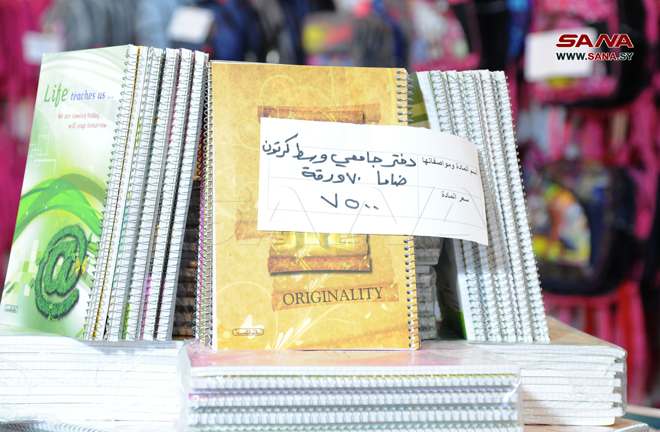 SANA
WWW.SANA.SY
Life teaches us ...
we are sowing today,
will reap tomorrow
@
اسم المادة ومواصفاتها
دفتر جامعي وسط كرتون
ضاما ٧٠ ورقة
سعر المادة
٧٥٠٠
ORIGINALITY